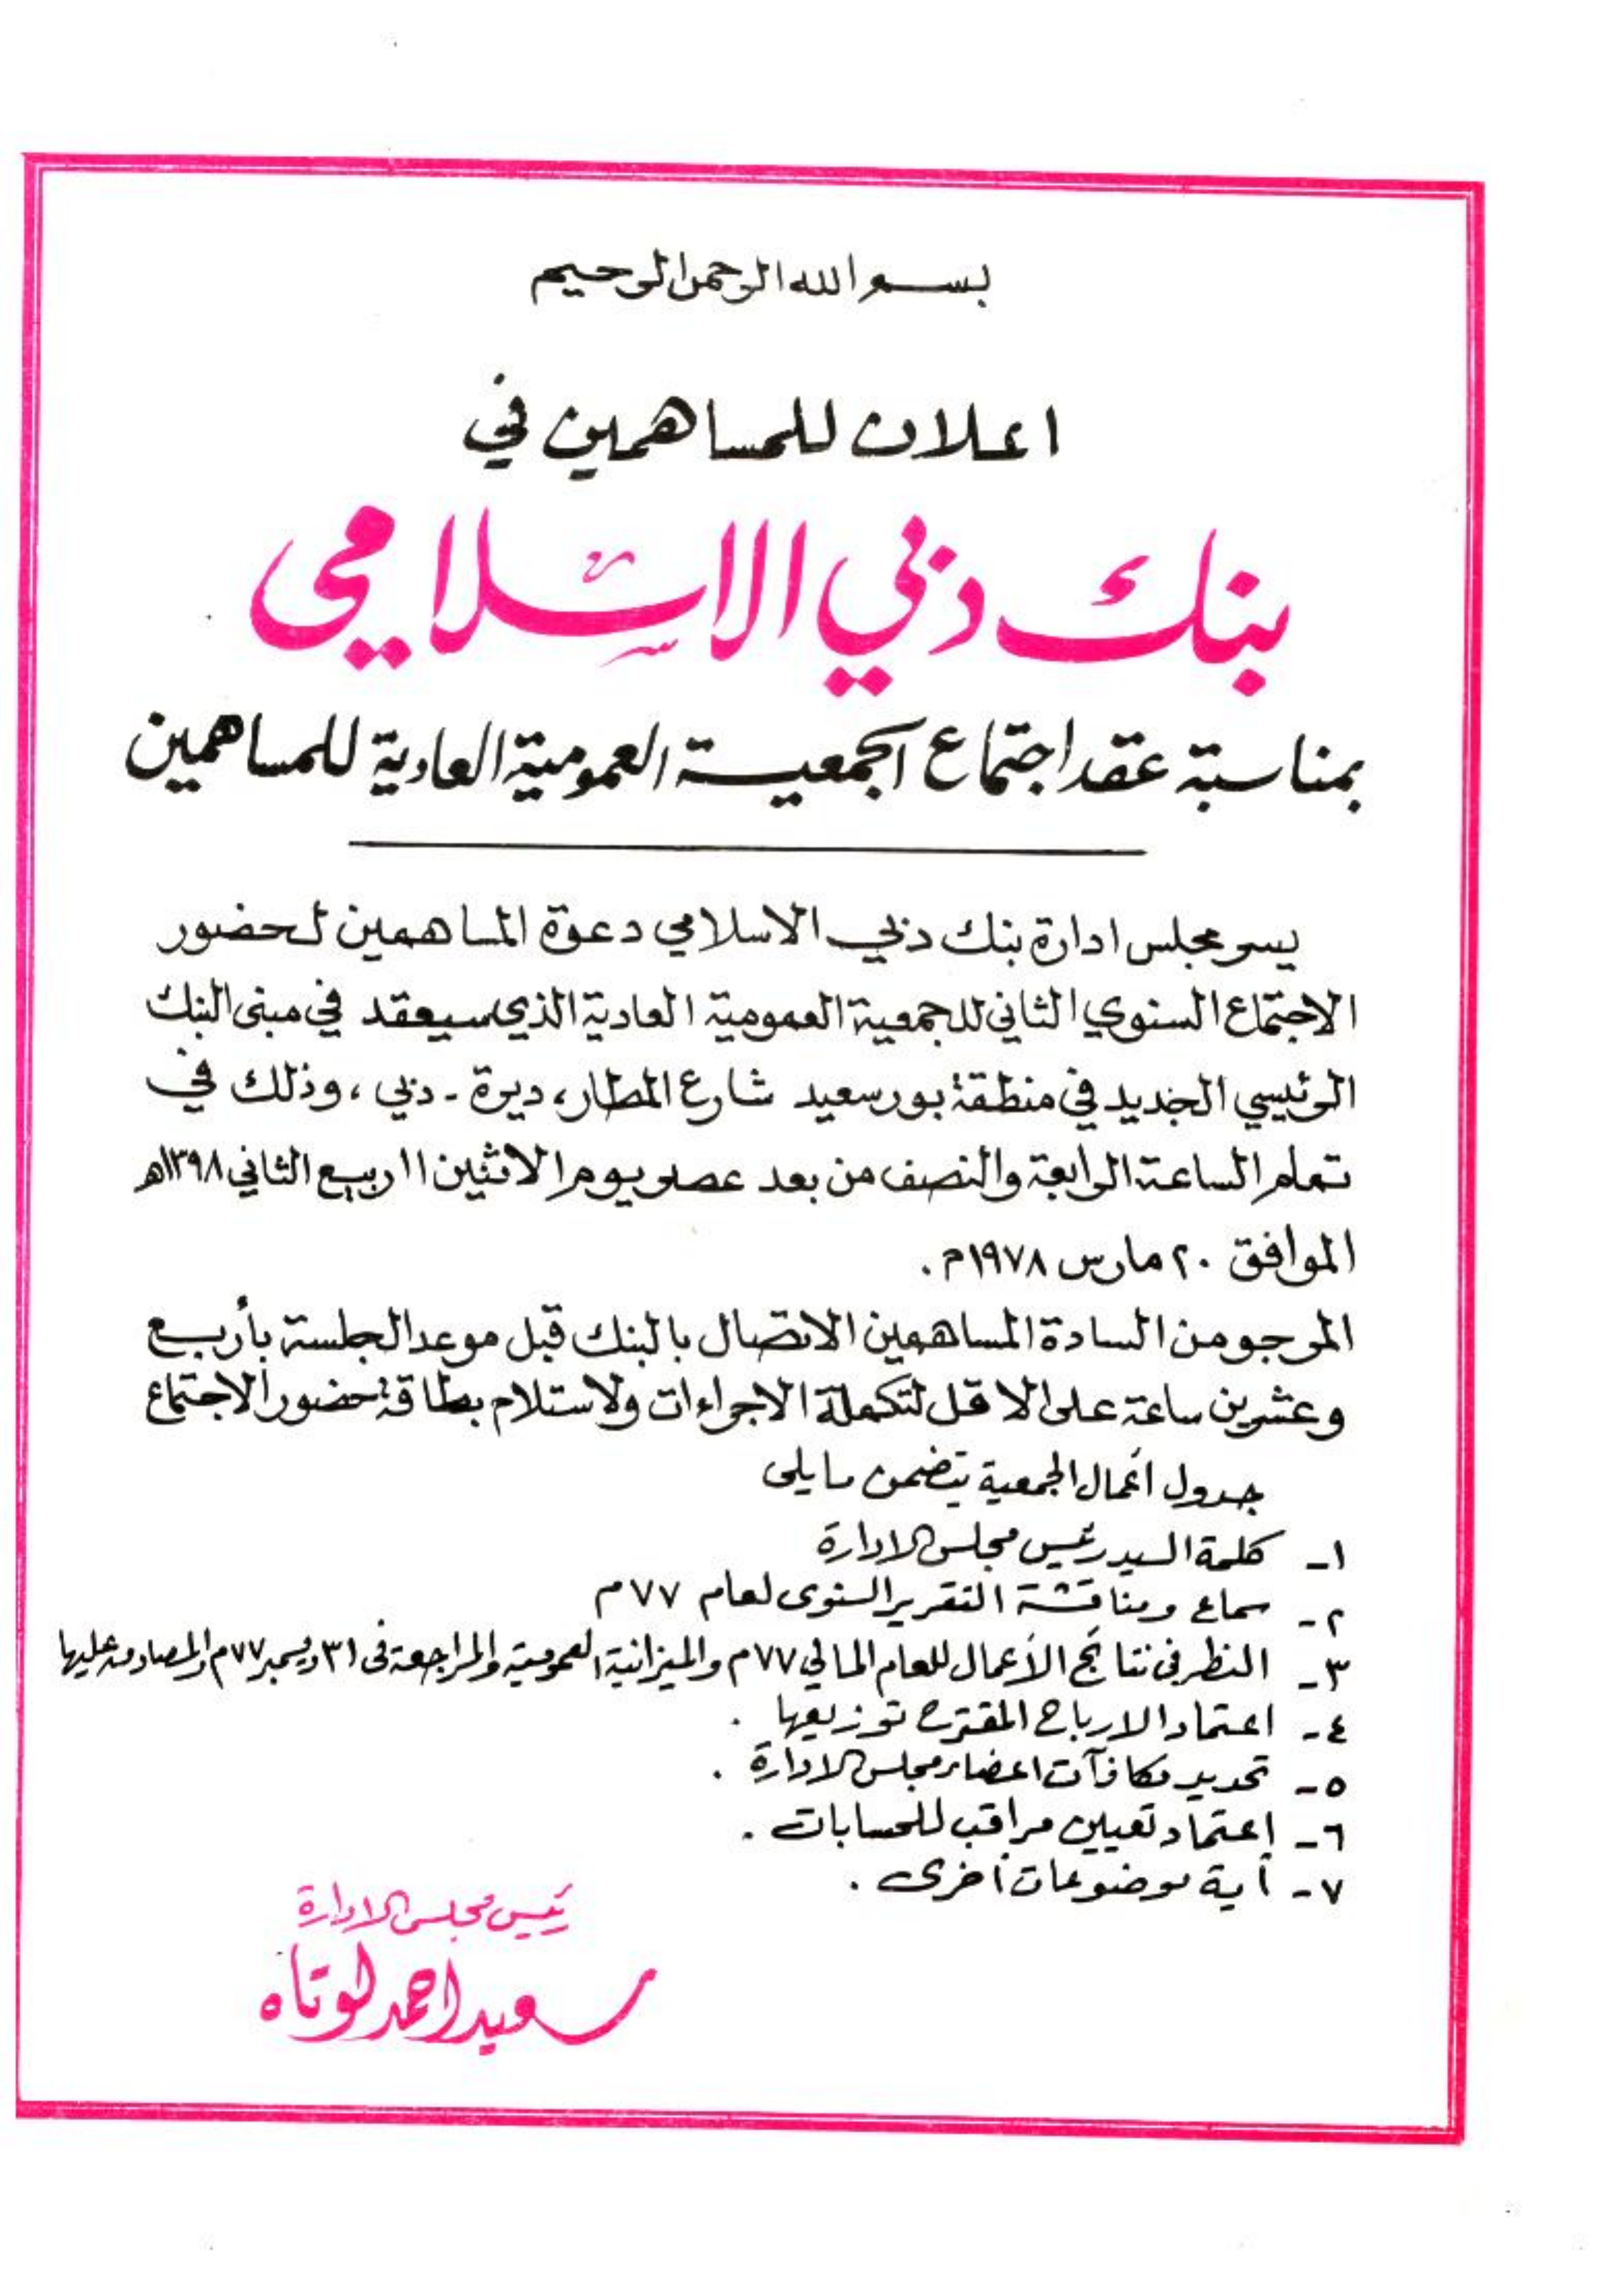 بسم الله الرحمن الرحيم
اعلان للمساهمين في
بنك دبي الاسلامي
بمناسبة عقد اجتماع الجمعية العمومية العادية للمساهمين
يسر مجلس ادارة بنك دبي الاسلامي دعوة المساهمين لحضور
الاجتماع السنوي الثاني للجمعية العمومية العادية الذي سيعقد في مبنى البنك
الرئيسي الجديد في منطقة بور سعيد شارع المطار، ديرة - دبي ، وذلك في
تمام الساعة الرابعة والنصف من بعد عصر يوم الاثنين ١١ ربيع الثاني ١٣٩٨هـ
الموافق ٢٠ مارس ١٩٧٨م .
المرجو من السادة المساهمين الاتصال بالبنك قبل موعد الجلسة بأربع
وعشرين ساعة على الاقل لتكملة الاجراءات ولاستلام بطاقة حضور الاجتماع
جدول أعمال الجمعية يتضمن ما يلى
١- كلمة السيد رئيس مجلس الادارة
٢- سماع ومناقشة التقرير السنوى لعام ٧٧م
٣- النظر فى نتائج الأعمال للعام المالي ٧٧م والميزانية العمومية والمراجعة فى ٣١ ديسمبر ٧٧م والمصادقه عليها
٤- اعتماد الارباح المقترح توزيعها .
٥- تحديد مكافآت اعضاء مجلس الادارة .
٦- إعتماد تعيين مراقب للحسابات .
٧- أية موضوعات أخرى .
رئيس مجلس الادارة
سعيد احمد لوتاه